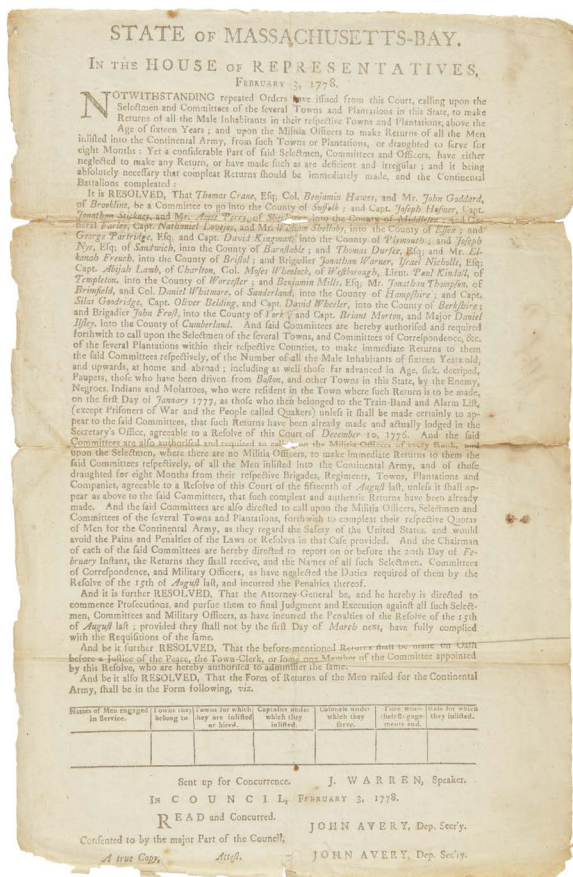 STATE OF MASSACHUSETTS-BAY.
IN THE HOUSE OF REPRESENTATIVES,
FEBRUARY 3, 1778.
NOTWITHSTANDING repeated Orders have issued from this Court, calling upon the
Selectmen and Committees of the several Towns and Plantations in this State, to make
Returns of all the Male Inhabitants in their respective Towns and Plantations, above the
Age of sixteen Years ; and upon the Militia Officers to make Returns of all the Men
inlisted into the Continental Army, from such Towns or Plantations, or draughted to serve for
eight Months : Yet a considerable Part of said Selectmen, Committees and Officers, have either
neglected to make any Return, or have made such as are deficient and irregular ; and it being
absolutely necessary that compleat Returns should be immediately made, and the Continental
Battalions compleated :
It is RESOLVED, That Thomas Crane, Esq; Col. Benjamin Hawes, and Mr. John Goddard,
of Brookline, be a Committee to go into the County of Suffolk ; and Capt. Joseph Hosmer, Capt.
Jonathan Stickney, and Mr. Perry, of into the County of Middlesex ; and
Farley, Capt. Nathaniel Lovejoy, and Mr. William Shellaby, into the County of Essex ; and
George Partridge, Esq; and Capt. David Kingman, into the County of Plymouth ; and Joseph
Nye, Esq; of Sandwich, into the County of Barnstable ; and Thomas Durfee, Esq; and Mr. El-
kanah French, into the County of Bristol ; and Brigadier Jonathan Warner, Israel Nicholls, Esq;
Capt. Abijah Lamb, of Charlton, Col. Moses Wheelock, of Westborough, Lieut. Paul Kindall, of
Templeton, into the County of Worcester ; and Benjamin Mills, Esq; Mr. Jonathan Thompson, of
Brimfield, and Col. Daniel Whitmore, of Sunderland, into the County of Hampshire ; and Capt.
Silas Goodridge, Capt. Oliver Belding, and Capt. David Wheeler, into the County of Berkshire ;
and Brigadier John Frost, into the County of York ; and Capt. Briant Morton, and Major Daniel
Ilsley, into the County of Cumberland. And said Committees are hereby authorised and required
forthwith to call upon the Selectmen of the several Towns, and Committees of Correspondence, &c.
of the several Plantations within their respective Counties, to make immediate Returns to them
the said Committees respectively, of the Number of all the Male Inhabitants of sixteen Years old,
and upwards, at home and abroad ; including as well those far advanced in Age, sick, decriped,
Paupers, those who have been driven from Boston, and other Towns in this State, by the Enemy,
Negroes, Indians and Molattoes, who were resident in the Town where such Return is to be made,
on the first Day of January 1777, as those who then belonged to the Train-Band and Alarm List,
(except Prisoners of War and the People called Quakers) unless it shall be made certainly to ap-
pear to the said Committees, that such Returns have been already made and actually lodged in the
Secretary's Office, agreeable to a Resolve of this Court of December 10, 1776. And the said
Committees are also authorised and required to call upon the Militia Officers of every Rank, and
upon the Selectmen, where there are no Militia Officers, to make immediate Returns to them the
said Committees respectively, of all the Men inlisted into the Continental Army, and of those
draughted for eight Months from their respective Brigades, Regiments, Towns, Plantations and
Companies, agreeable to a Resolve of this Court of the fifteenth of August last, unless it shall ap-
pear as above to the said Committees, that such compleat and authentic Returns have been already
made. And the said Committees are also directed to call upon the Militia Officers, Selectmen and
Committees of the several Towns and Plantations, forthwith to compleat their respective Quotas
of Men for the Continental Army, as they regard the Safety of the United States, and would
avoid the Pains and Penalties of the Laws or Resolves in that Case provided. And the Chairman
of each of the said Committees are hereby directed to report on or before the 20th Day of Fe-
bruary Instant, the Returns they shall receive, and the Names of all such Selectmen, Committees
of Correspondence, and Military Officers, as have neglected the Duties required of them by the
Resolve of the 15th of August last, and incurred the Penalties thereof.
And it is further RESOLVED, That the Attorney-General be, and he hereby is directed to
commence Prosecutions, and pursue them to final Judgment and Execution against all such Select-
men, Committees and Military Officers, as have incurred the Penalties of the Resolve of the 15th
of August last ; provided they shall not by the first Day of March next, have fully complied
with the Requisitions of the same.
And be it further RESOLVED, That the before-mentioned Returns shall be made on Oath
before a Justice of the Peace, the Town-Clerk, or some one Member of the Committee appointed
by this Resolve, who are hereby authorised to administer the same.
And be it also RESOLVED, That the Form of Returns of the Men raised for the Continental
Army, shall be in the Form following, viz.
Names of Men engaged in Service. | Towns they belong to | Towns for which they are inlisted or hired. | Captains under which they inlisted. | Colonels under which they serve. | Time when their Engagements end. | Date for which they inlisted.
Sent up for Concurrence. J. WARREN, Speaker.
IN COUNCIL, FEBRUARY 3, 1778.
READ and Concurred.
JOHN AVERY, Dep. Sec'y.
Consented to by the major Part of the Council,
A true Copy, Attest, JOHN AVERY, Dep. Sec'ry.